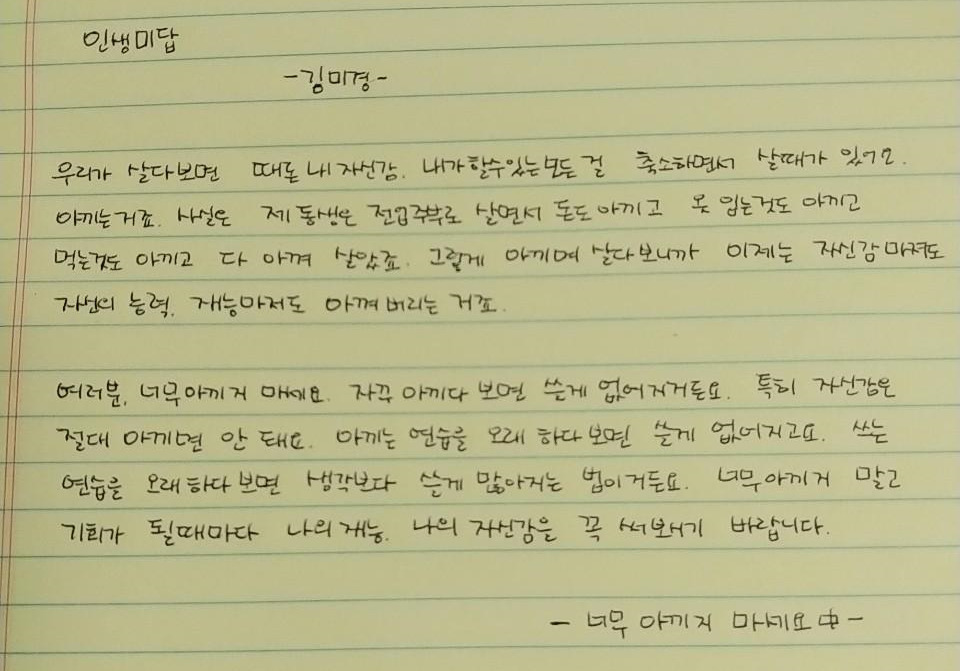 인생미답
-김미경-
우리가 살다보면 때론 내 자신감. 내가 할수있는 모든 걸 축소하면서 살때가 있거요.
아끼는거죠. 사실은 제 동생은 전업주부로 살면서 돈도 아끼고 옷 입는것도 아끼고
먹는것도 아끼고 다 아껴 살았죠. 그렇게 아끼며 살다보니까 이제는 자신감마저도
자신의 능력. 재능마저도 아껴버리는 거죠.
여러분, 너무아끼지 마세요. 자꾸 아끼다 보면 쓸게 없어지거든요. 특히 자신감은
절대 아끼면 안 돼요. 아끼는 연습을 오래 하다보면 쓸게 없어지고요. 쓰는
연습을 오래하다 보면 생각보다 쓸게 많아지는 법이거든요. 너무아끼지 말고
기회가 될때마다 나의재능. 나의 자신감을 꼭 써보시기 바랍니다.
- 너무 아끼지 마세요 中 -